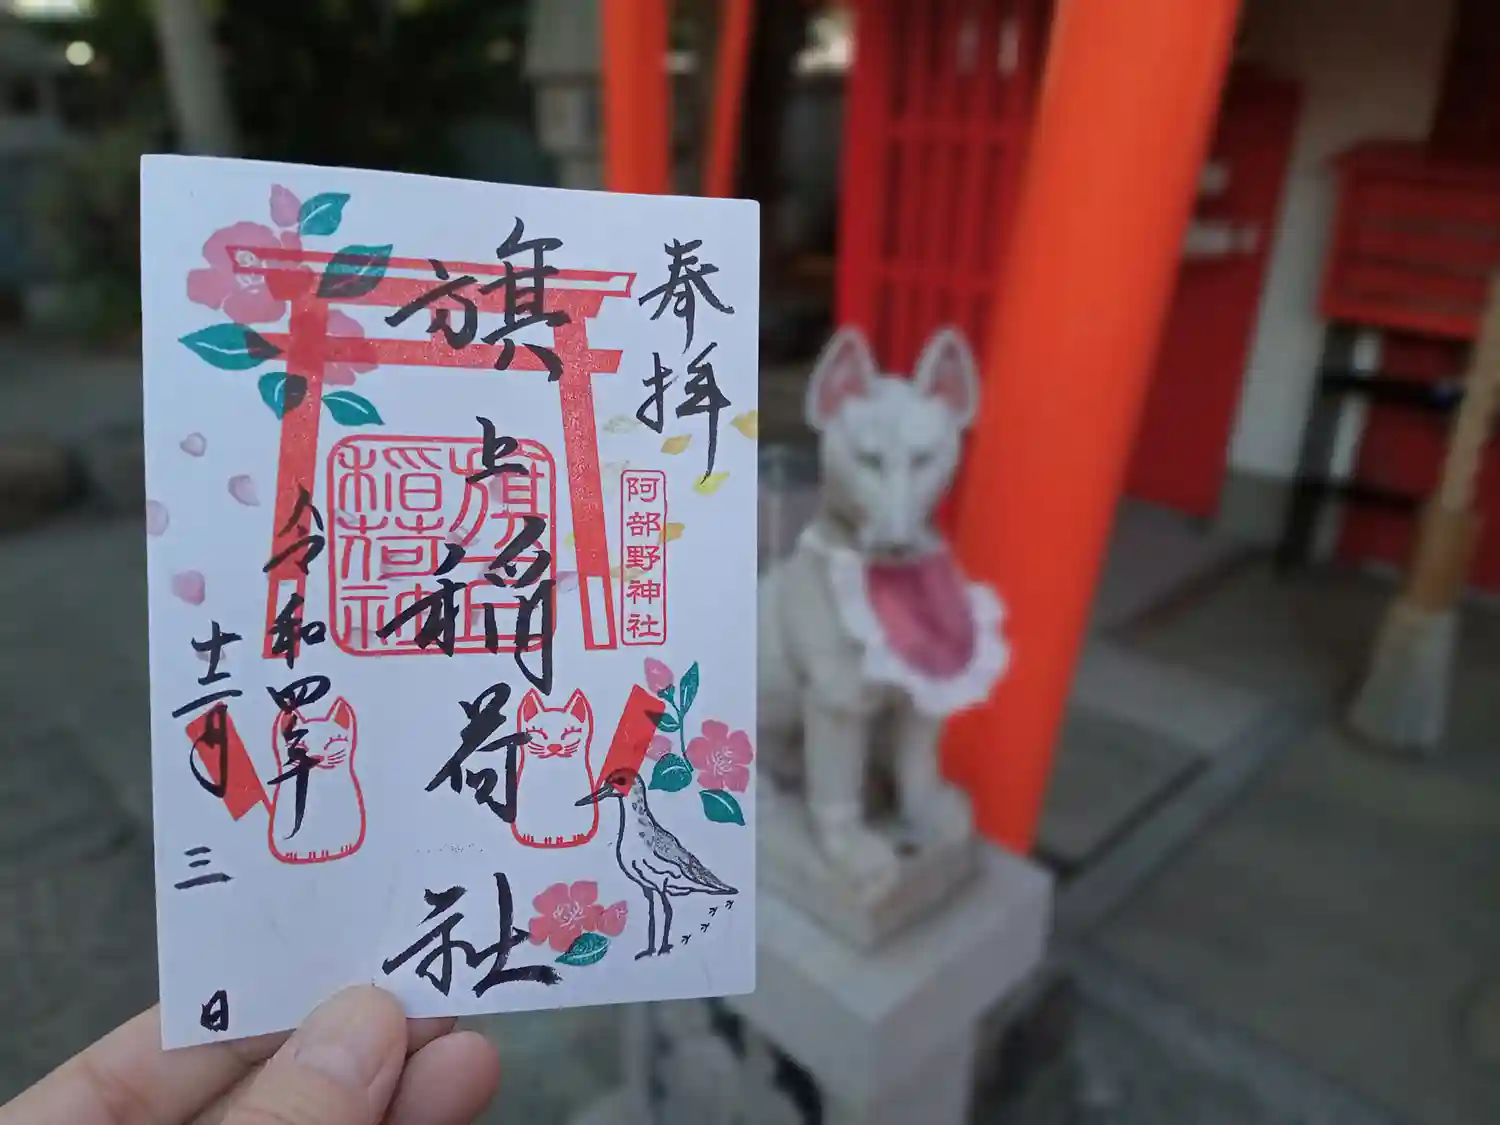 奉拝
阿部野神社
旗上稲荷社
旗上稲荷社
令和四年
十二月三日